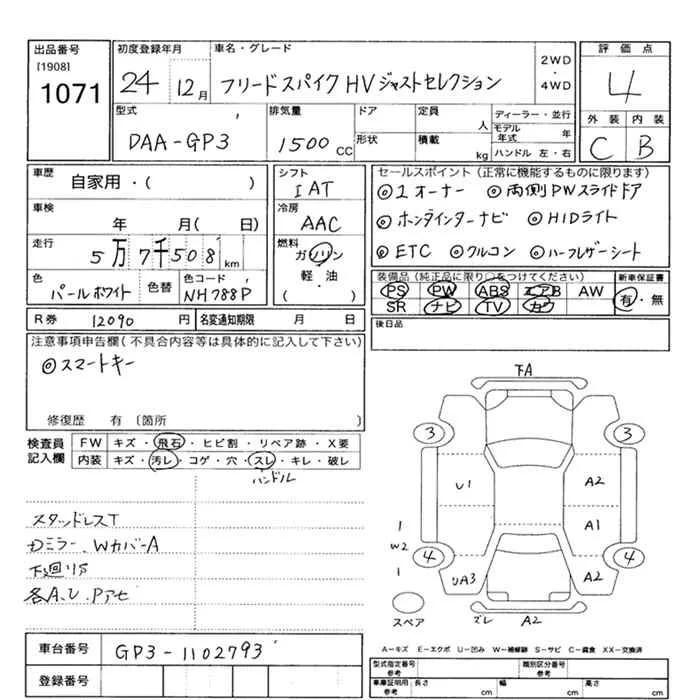 出品番号
[1908]
1071
初度登録年月
24 12月
車名・グレード
フリードスパイクHVジャストセレクション
2WD
・
4WD
評価点
4
外装 内装
C B
型式
DAA-GP3
排気量
1500 CC
ドア
形状
定員
人
積載
kg
ディーラー・並行
モデル年式 年
ハンドル 左・右
車歴
自家用・( )
車検
年 月( 日)
走行
5万7千508km
色
パールホワイト
色替
色コード
NH788P
シフト
IAT
冷房
AAC
燃料
ガソリン
軽・油
( )
セールスポイント(正常に機能するものに限ります)
◎1オーナー ◎両側PWスライドドア
◎ホンダインターナビ ◎HIDライト
◎ETC ◎クルコン ◎ハーフレザーシート
装備品(純正品に限り○をつけてください)
PS PW ABS エアB AW
SR ナビ TV カワ
新車保証書
有・無
後日品
R券 12090 円
名変通知期限 月 日
注意事項申告欄(不具合内容等は具体的に記入して下さい)
◎スマートキー
修復歴 有 〔箇所 〕
検査員記入欄
FW キズ・飛石・ヒビ割・リペア跡・X要
内装 キズ・汚レ・コゲ・穴・スレ・キレ・破レ
ハンドル
スタッドレスT
Dミラー、WカバーA
下廻リサ
各A、U、Pアセ
車台番号
GP3-1102793
登録番号
下A
3 3
U1 A2
A1
1
W2
1
4 4
UA3 A2
スペア
ズレ A2
A－キズ E－エクボ U－凹み W－補修跡 S－サビ C－腐食 XX－交換済
型式指定番号 参考
類別区分番号 参考
車庫証明用 参考
長さ cm
幅 cm
高さ cm